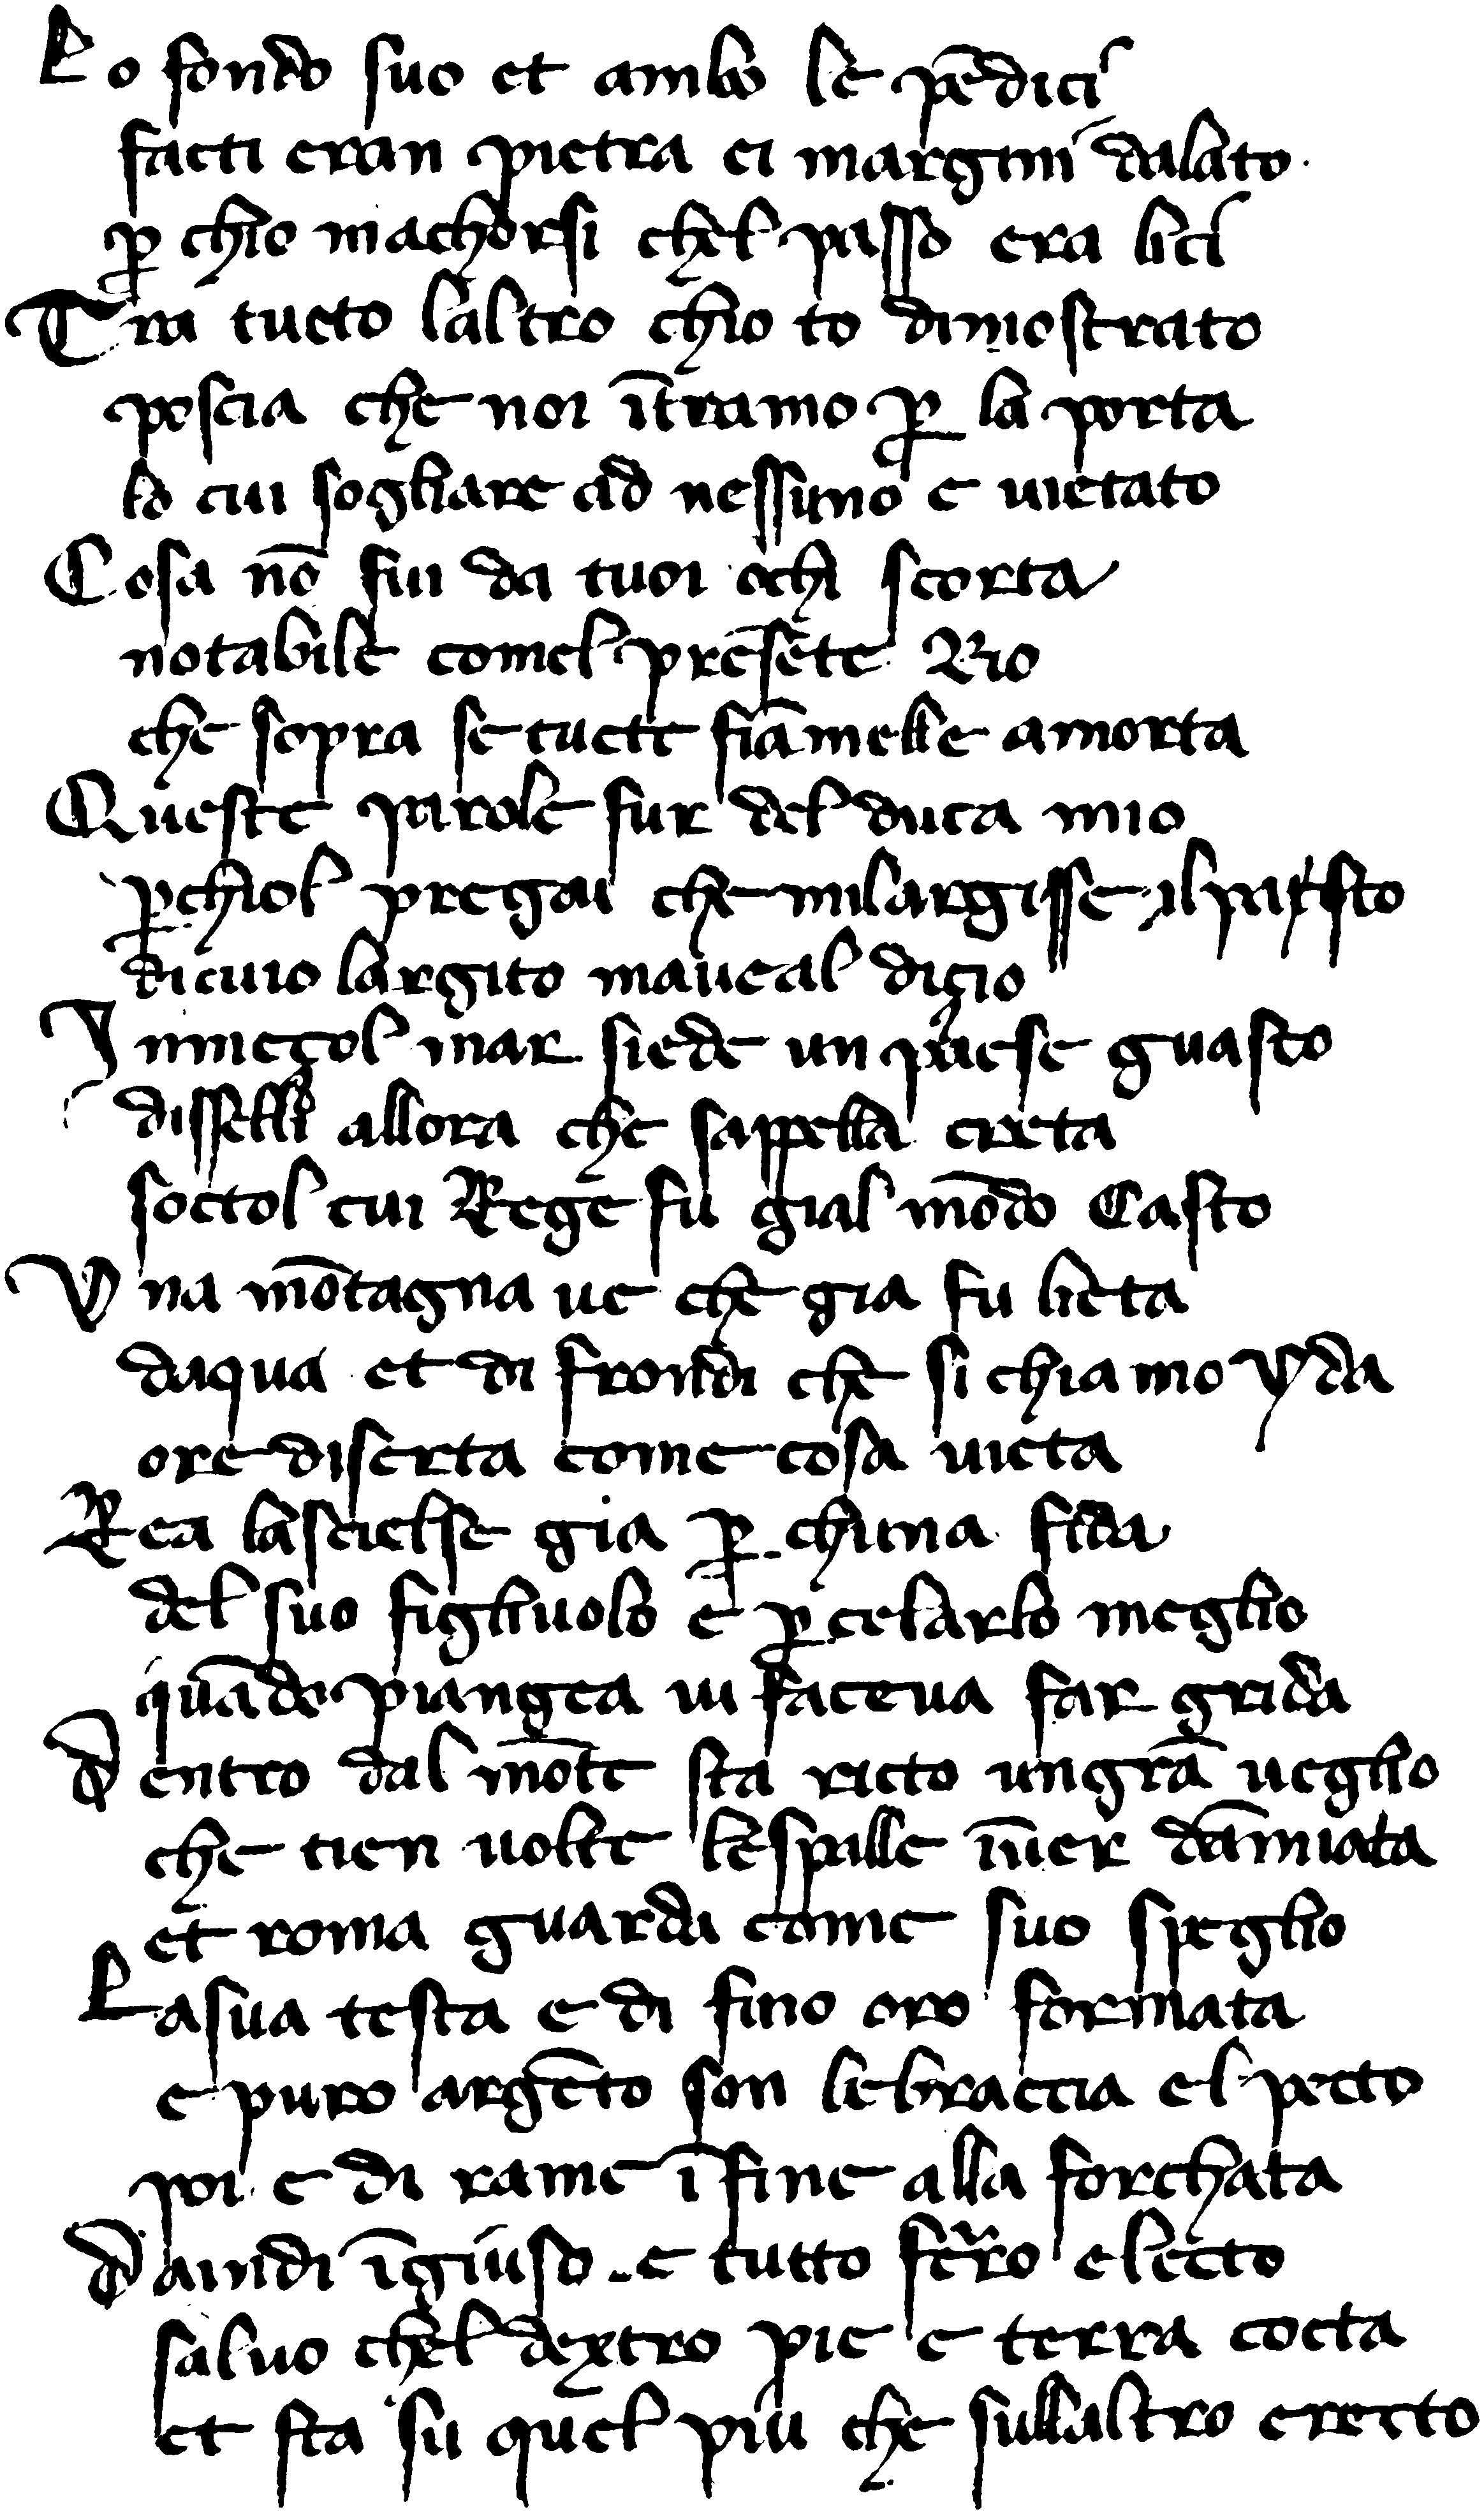 Lo fondo suo et ambo le pēdici
facti eran pietra ei margini dallato
ꝑ chio machorsi chel passo era lici
Tra tucto laltro chio to dimostrato
poscia che noi ītramo ꝑ la porta
lo cui sogliare ad nessuno e uietato
Cosa nō fu da tuoi ochi scorta
notabile comel presēte rio
che sopra se tucte fiāmelle amorta
Queste parole fur del duca mio
ꝑchiol pregai che milargisse il pasto
di cuio largito mauea il disio
In mezol mar siede un paese guasto
disselli allora che sappella creta
sottol cui Rege fu gial mōdo Casto
Vna mōtagna ue che gia fu lieta
daqua et di frondi che si chiamo yda
ore diserta come cosa uieta
Rea lascielse gia ꝑ chuna fida
del suo figliuolo e ꝑ celarlo meglio
quādo piangea ui faceua far grida
Dentro dal mōte sta ricto un grā ueglio
che tien uolte le spalle īuer dāmiata
et roma guarda come suo speglio
La sua testa e di fino oro formata
e puro argēto son le braccia el pecto
poi e di rame īfine alla forchata
Da indi īgiuso e tutto ferro electo
saluo chel dextro pie e terra cocta
et sta su quel piu che sullaltro erecto